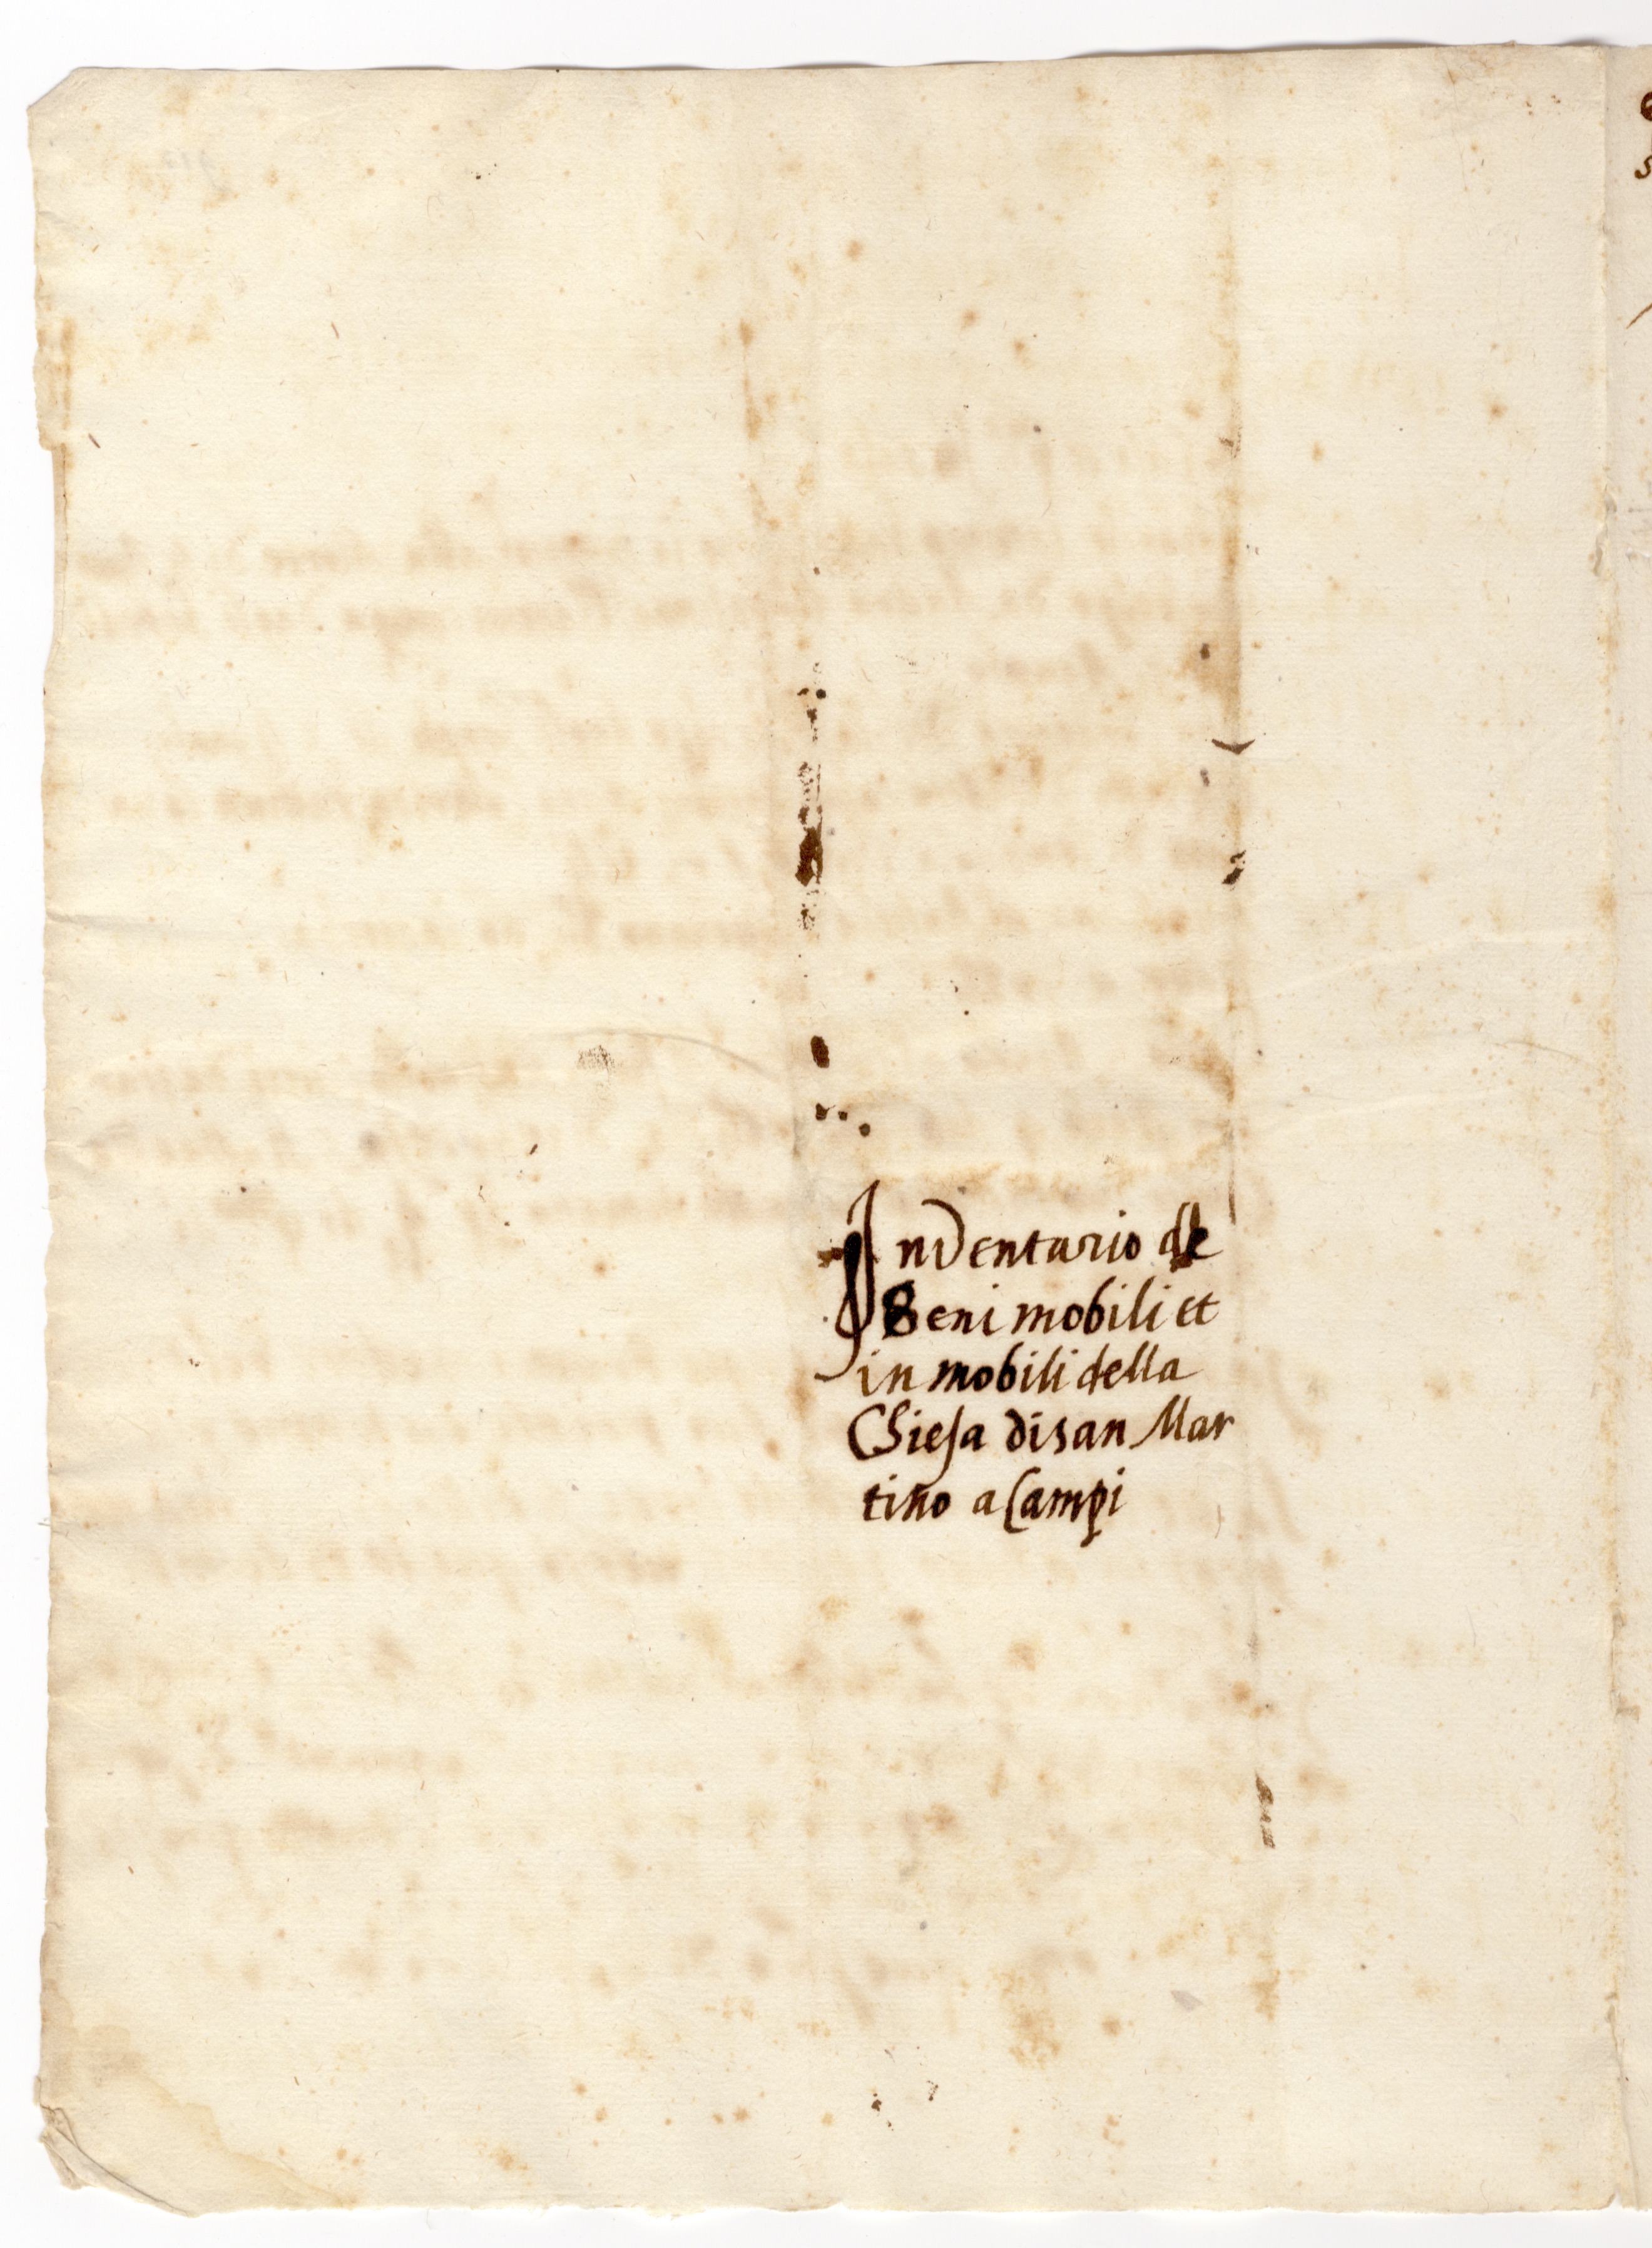 Inventario de
Beni mobili et
in mobili della
Chiesa di san Mar
tino a Campi